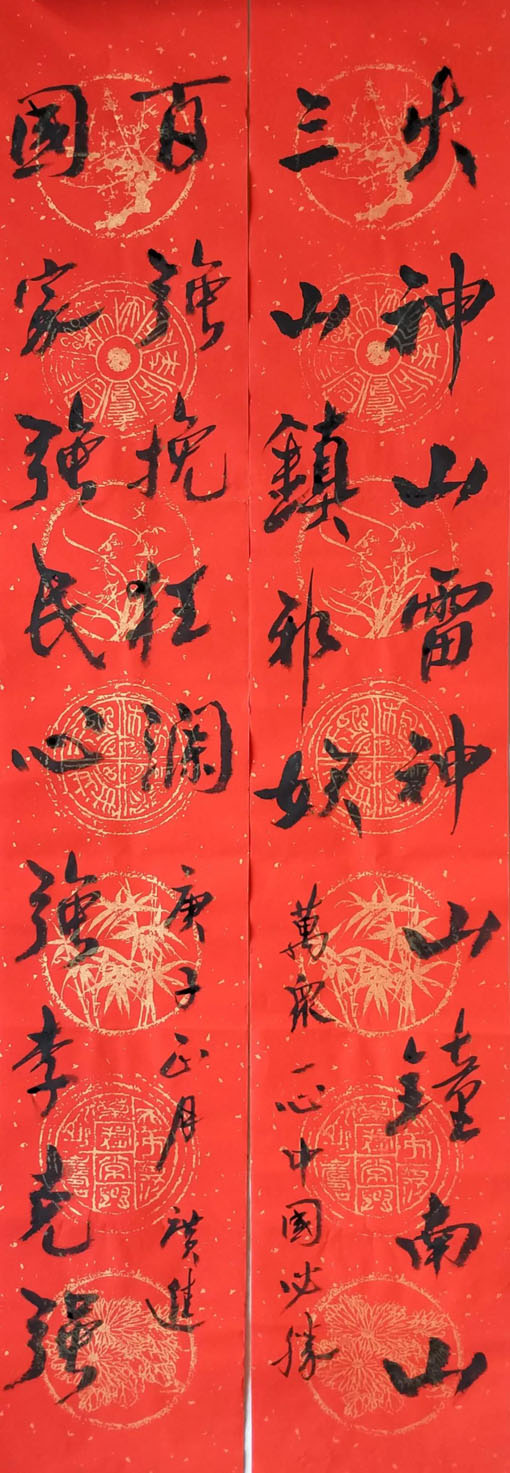 火神山雷神山鐘南山
三山鎮邪妖
萬眾一心中國必勝
國家強民心強李克强
百強挽狂澜
庚子正月